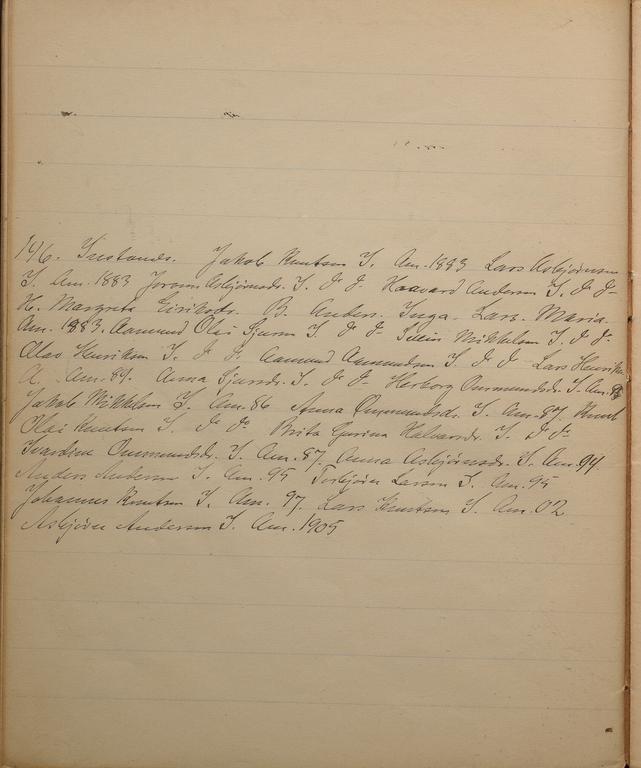 146. Tveitane. Jakob Knutsen T. Am. 1883 Lars Asbjørnsen
T. Am. 1883 Joron Asbjørnsdr. T. d. d. Haavard Andersen T. d. d.
H. Margreta Eiriksdr. B. Anders. Inga. Lars. Maria
Am. 1883. Aamund Olai Sjursen T. d. d. Svein Mikkelsen T. d. d.
Olav Henriksen T. d. d. Aamund Aamundsen T. d. d. Lars Henriksen
Am. 84. Anna Sjursdr. T. d. d. Herborg Ommundsdr. T. Am.
Jakob Mikkelsen T. Am. 86 Anna Ommundsdr. T. Am. 87. Knut
Olai Knutsen T. d. d. Brita Gurina Halvarsdr. T. d. d.
Ommundsdr. T. Am. 87. Anna Asbjørnsdr. T. Am. 94
Anders Andersen T. Am. 95 Torbjørn Larsen T. Am. 95
Johannes Knutsen T. Am. 97. Lars Knutsen T. Am. 02
Asbjørn Andersen T. Am. 1905